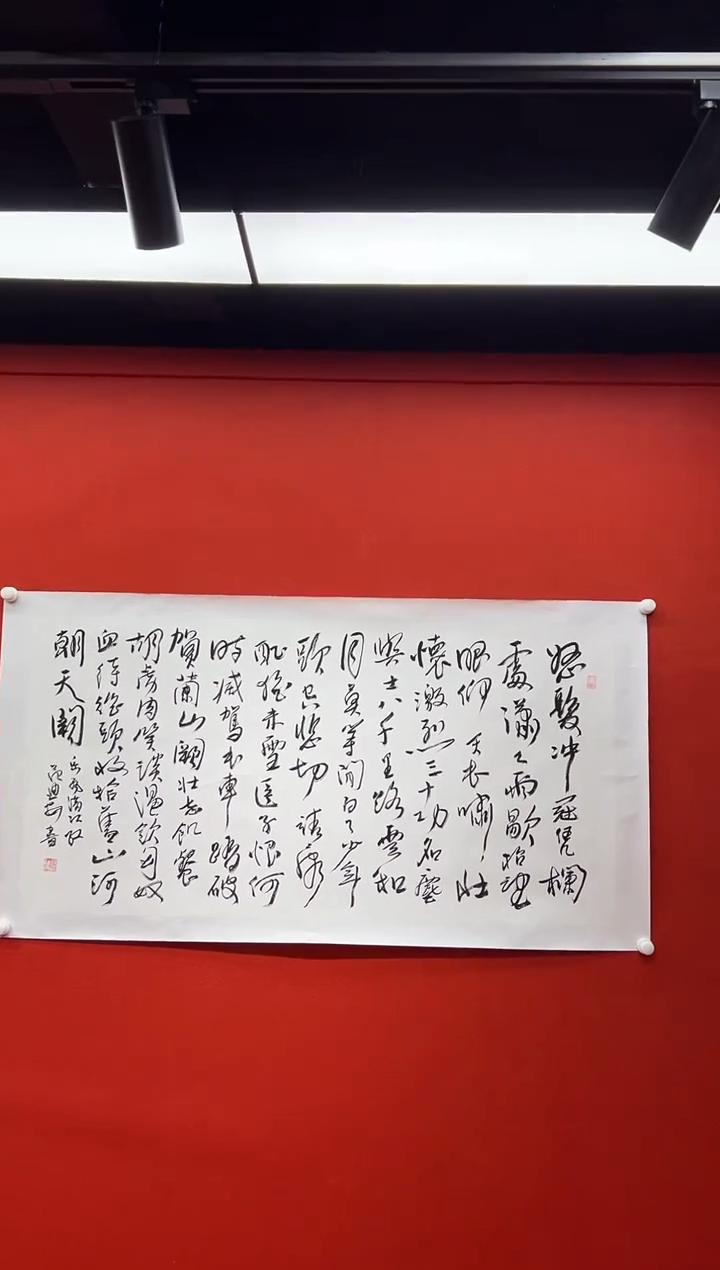 怒髮冲冠凭欄
處瀟々雨歇抬望
眼仰天長嘯壯
懷激烈三十功名塵
與土八千里路雲和
月莫等閒白了少年
頭空悲切靖康
恥猶未雪臣子恨何
時滅駕長車踏破
賀蘭山闕壯志飢餐
胡虜肉笑談渴飲匈奴
血待從頭收拾舊山河
朝天闕
岳飛滿江紅
書